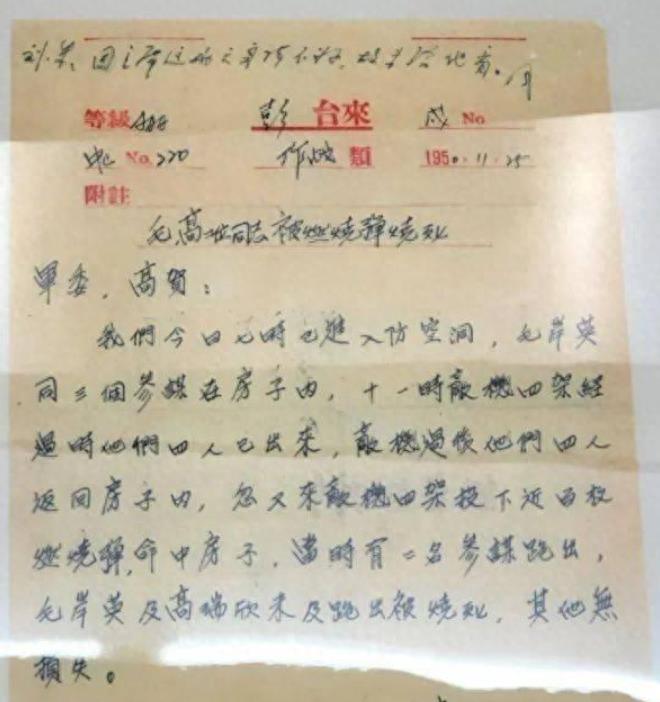 等級AAAA 彭 台來 戌 No
No. 220 作战 類 1950.11.25
附註
毛高二位同志被燃燒彈燒死
軍委，高賀：
我們今日七時已進入防空洞，毛岸英
同三個參謀在房子內，十一時敵機四架經
過時他們四人已出來，敵機過後他們四人
返回房子內，忽又來敵機四架投下近百枚
燃燒彈，命中房子，當時有二名參謀跑出，
毛岸英及高瑞欣未及跑出被燒死，其他無
損失。